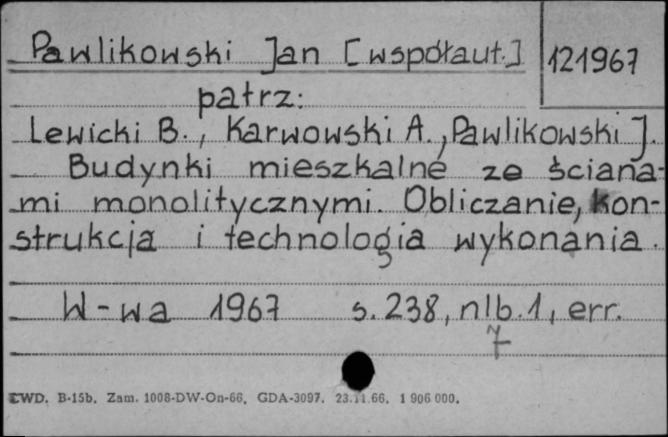 Pawlikowski Jan [współaut.] 121967
patrz:
Lewicki B., Karwowski A., Pawlikowski J.
Budynki mieszkalne ze ściana-
mi monolitycznymi. Obliczanie, kon-
strukcja i technologia wykonania.
W-wa 1967 s. 238, nlb. 1, err.
7
CWD. B-15b. Zam. 1008-DW-On-66. GDA-3097. 23.11.66. 1 906 000.